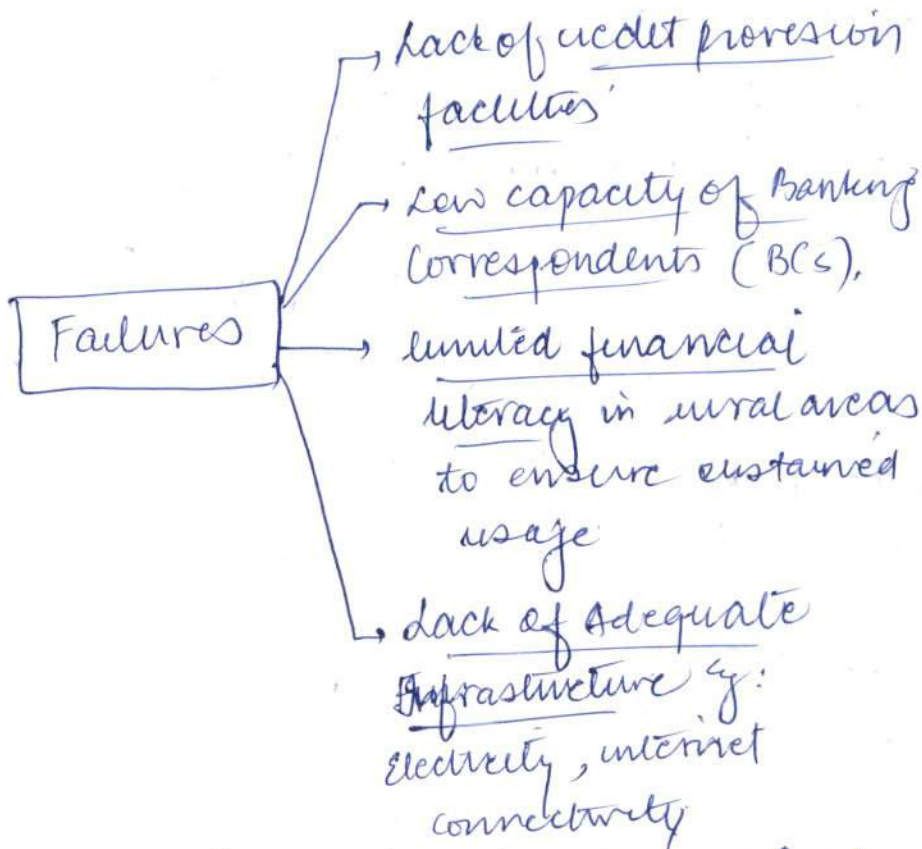 Lack of credit provision
facilities
Low capacity of Banking
Correspondents (BCs),
Failures
limited financial
literacy in rural areas
to ensure sustained
usage
Lack of Adequate
Infrastructure eg:
Electricity, internet
connectivity